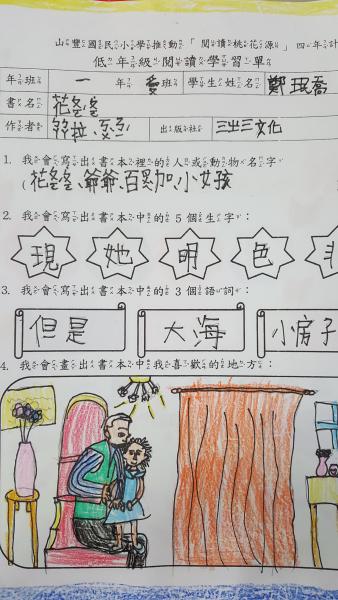 山豐國民小學推動「閱讀桃花源」四年計
低年級閱讀學習單
年班 一年 愛班 學生姓名 鄭珉喬
書名 花冬冬
作者 出版社 三之三文化
1. 我會寫出書本裡的人或動物名字
(花冬冬、爺爺、百慕加、小女孩
2. 我會寫出書本中的5個生字:
現 她 明 色
3. 我會寫出書本中的3個語詞:
但是 大海 小房子
4. 我會畫出書本中我喜歡的地方: